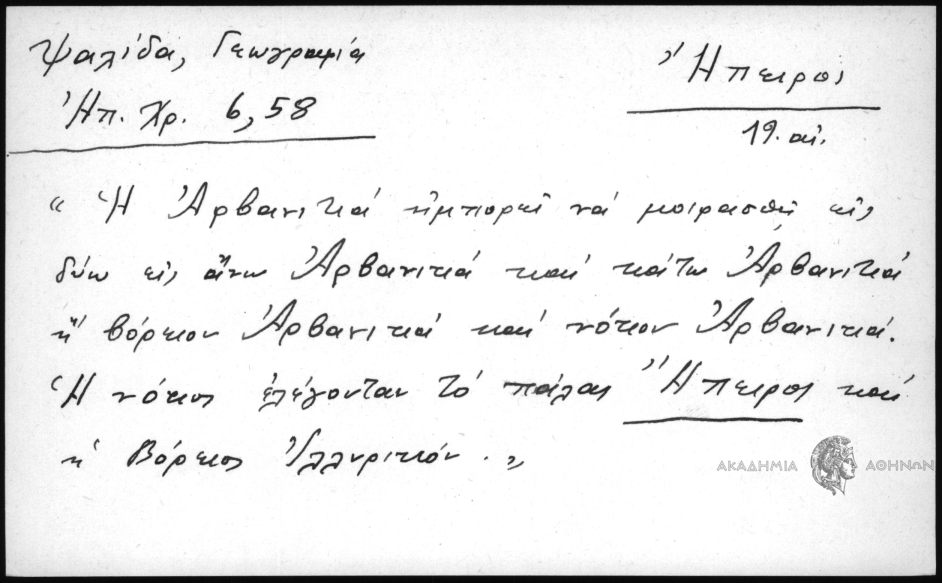 Ψαλίδα, Γεωγραφία
Ἠπ. Χρ. 6, 58
Ἤπειρος
19. αἰ.
“ Ἡ Ἀρβανιτιά ἠμπορεῖ νά μοιρασθῇ εἰς
δύω εἰς ἄνω Ἀρβανιτιά καί κάτω Ἀρβανιτιά
ἤ βόρειον Ἀρβανιτιά καί νότιον Ἀρβανιτιά.
Ἡ νότιος ἐλέγονταν τό πάλαι Ἤπειρος καί
ἡ Βόρειος Ἰλλυρικόν. „
ΑΚΑΔΗΜΙΑ ΑΘΗΝΩΝ